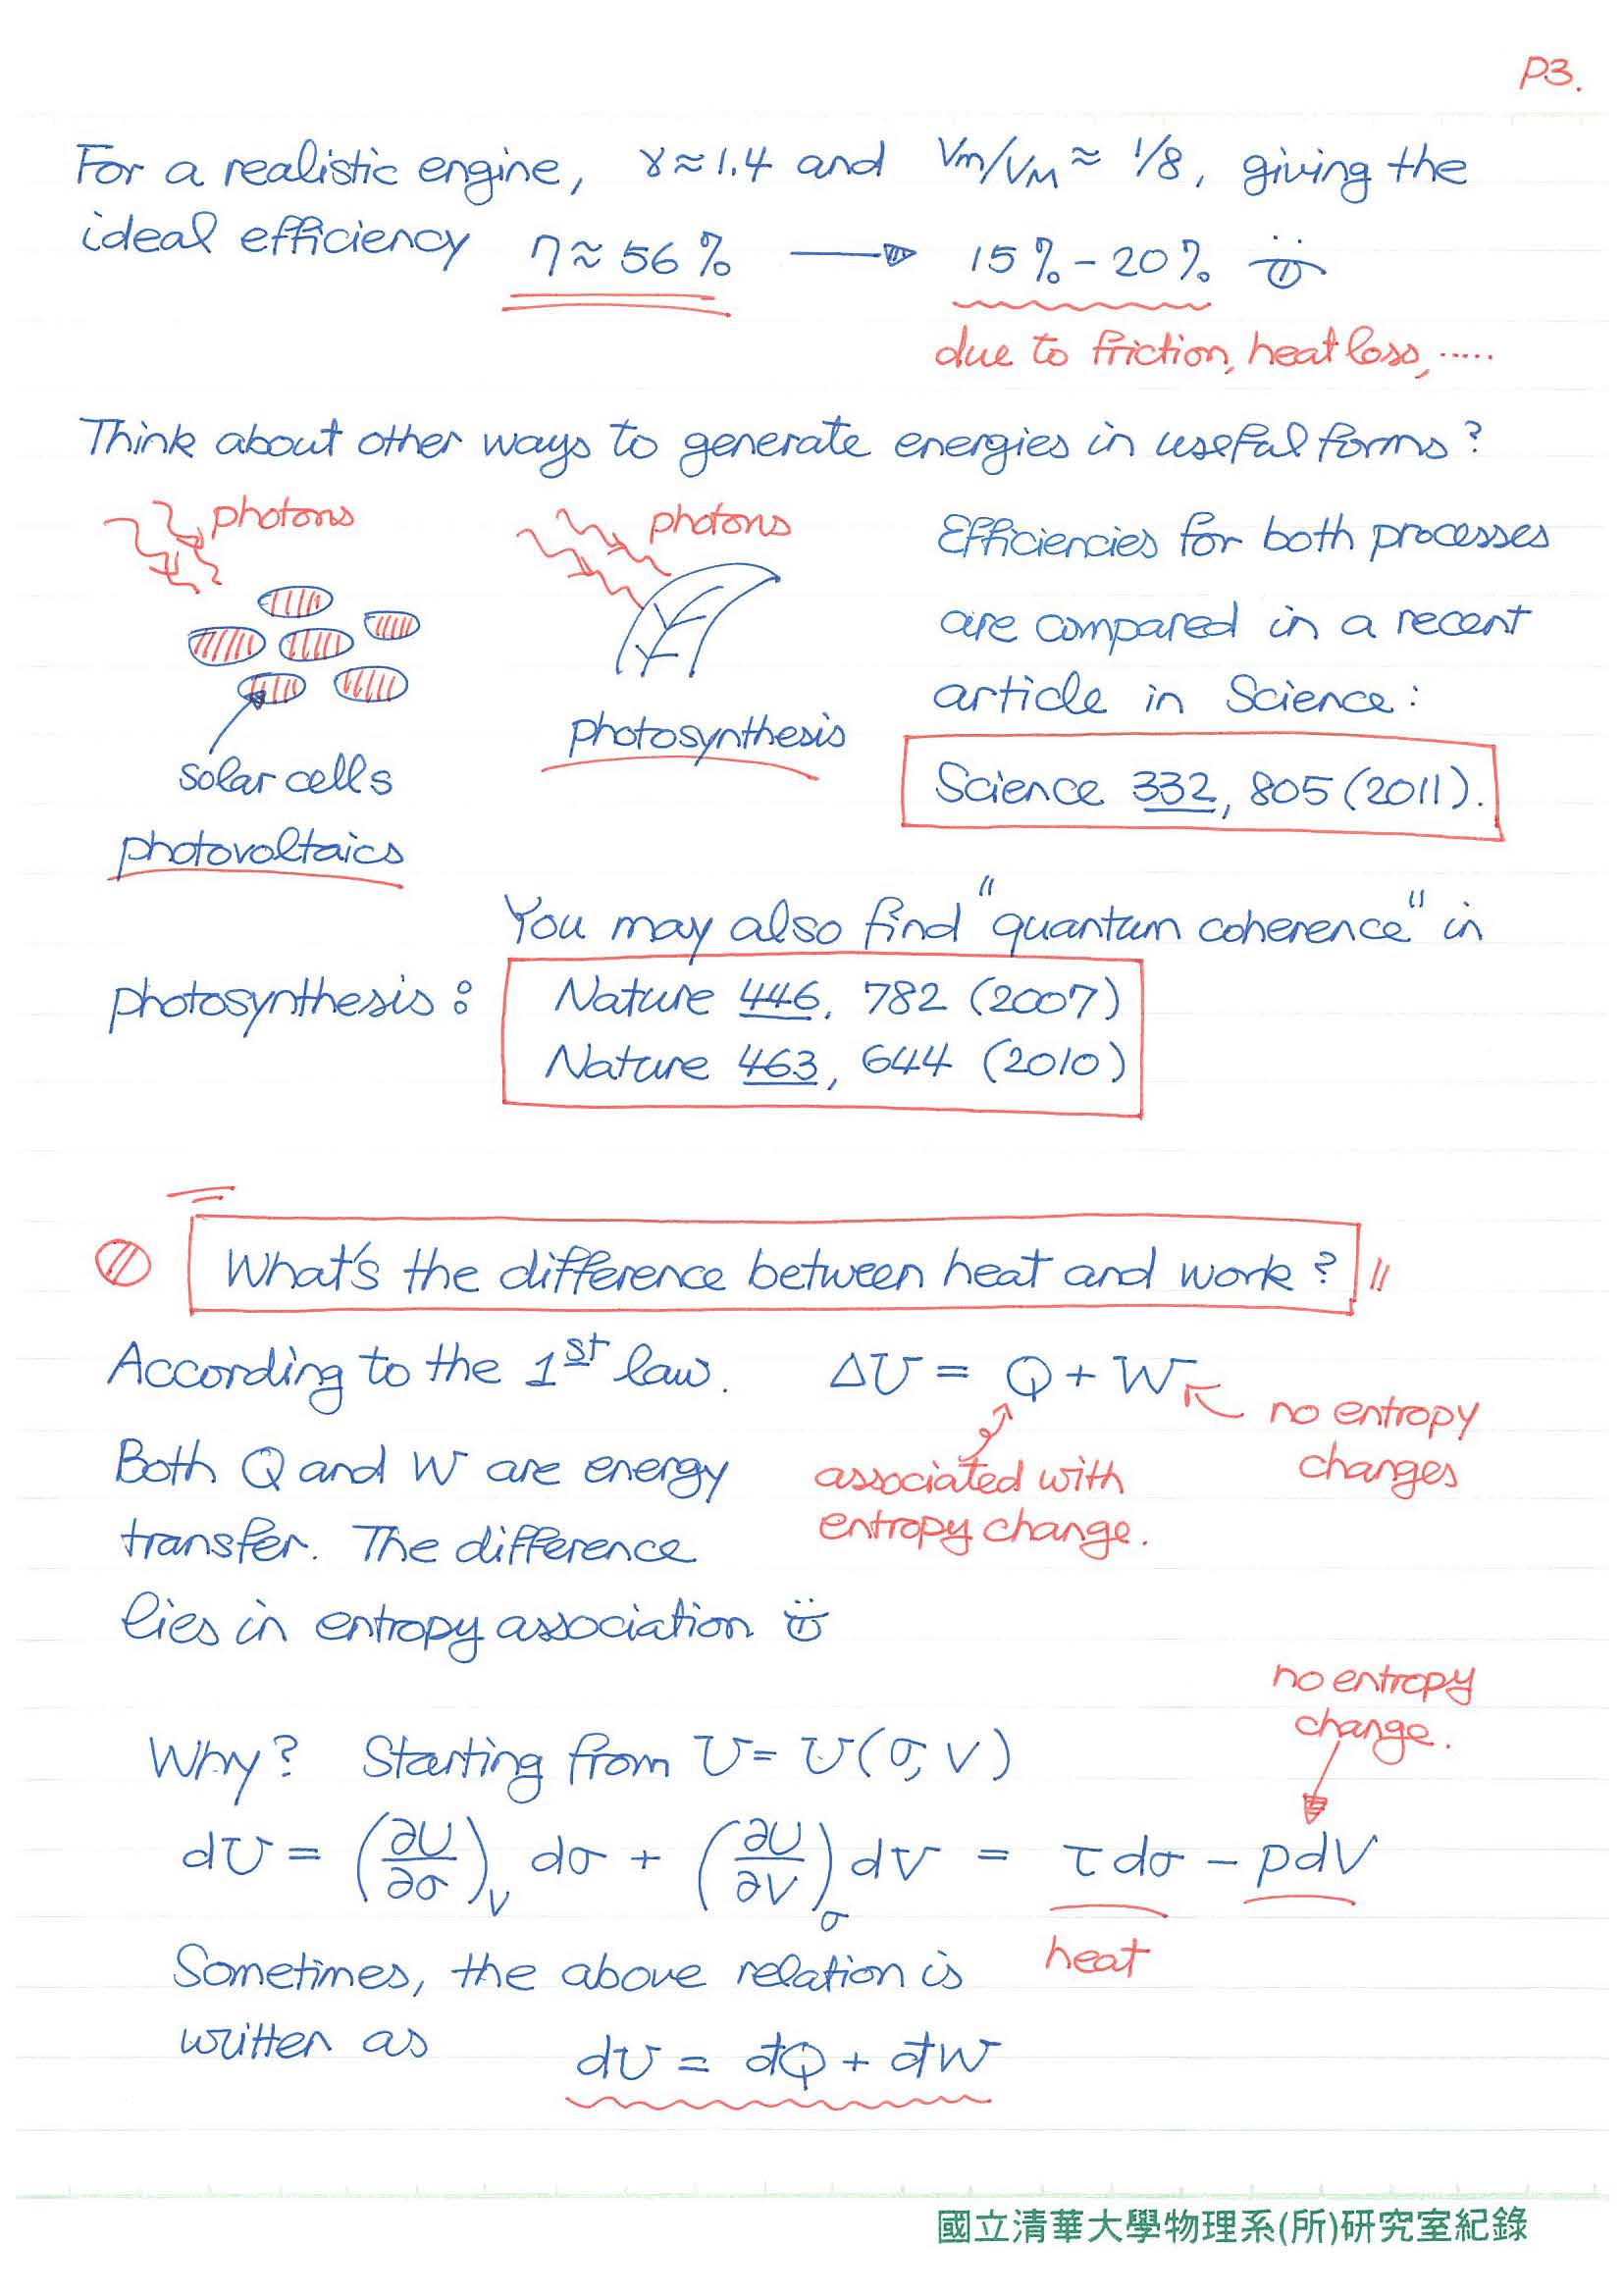 P3.
For a realistic engine, γ≈1.4 and Vm/VM ≈ 1/8, giving the
ideal efficiency η≈56% → 15%-20%
due to friction, heat loss, .....
Think about other ways to generate energies in useful forms?
photons
photons
solar cells
photovoltaics
photosynthesis
Efficiencies for both processes
are compared in a recent
article in Science:
Science 332, 805 (2011).
You may also find "quantum coherence" in
photosynthesis:
Nature 446, 782 (2007)
Nature 463, 644 (2010)
What's the difference between heat and work?
According to the 1st law. ΔU = Q + W
no entropy
changes
associated with
entropy change.
Both Q and W are energy
transfer. The difference
lies in entropy association
no entropy
change.
Why? Starting from U = U(σ, V)
dU = (∂U/∂σ)V dσ + (∂U/∂V)σ dV = τdσ - pdV
heat
Sometimes, the above relation is
written as dU = đQ + đW
國立清華大學物理系(所)研究室紀錄